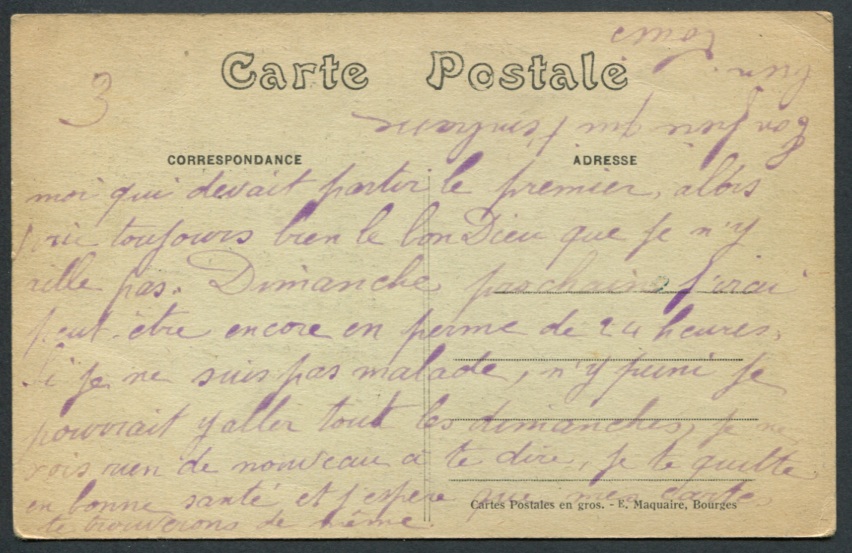 3
Carte Postale
CORRESPONDANCE
ADRESSE
moi qui devait partir le premier, alors
prie toujours bien le bon Dieu que je n'y
aille pas. Dimanche prochain j'irai
peut-être encore en perme de 24 heures,
Si je ne suis pas malade, n'y puni je
pourrait y aller tout les dimanches, je ne
vois rien de nouveau a te dire, je te quitte
en bonne santé et j'espère que mes cartes
te trouverons de même.
Ton qui t'embrasse
Louis
Cartes Postales en gros. - E. Maquaire, Bourges